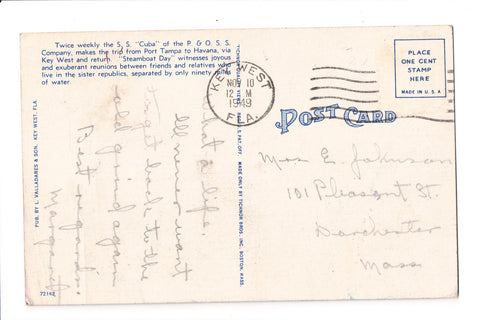 Twice weekly the S. S. "Cuba" of the P. & O. S. S.
Company, makes the trip from Port Tampa to Havana, via
Key West and return. "Steamboat Day" witnesses joyous
and exuberant reunions between friends and relatives who
live in the sister republics, separated by only ninety miles
of water.
PUB. BY L. VALLADARES & SON, KEY WEST, FLA
72142
What a life.
I'll never want
to get back to the
old grind again
Best regards.
Margaret
MADE ONLY BY TICHNOR BROS., INC., BOSTON, MASS.
KEY WEST
NOV 10
12 M
1949
FLA.
POST CARD
PLACE
ONE CENT
STAMP
HERE
MADE IN U. S. A
E. Johnson
101 Pleasant St.
Dorchester
Mass